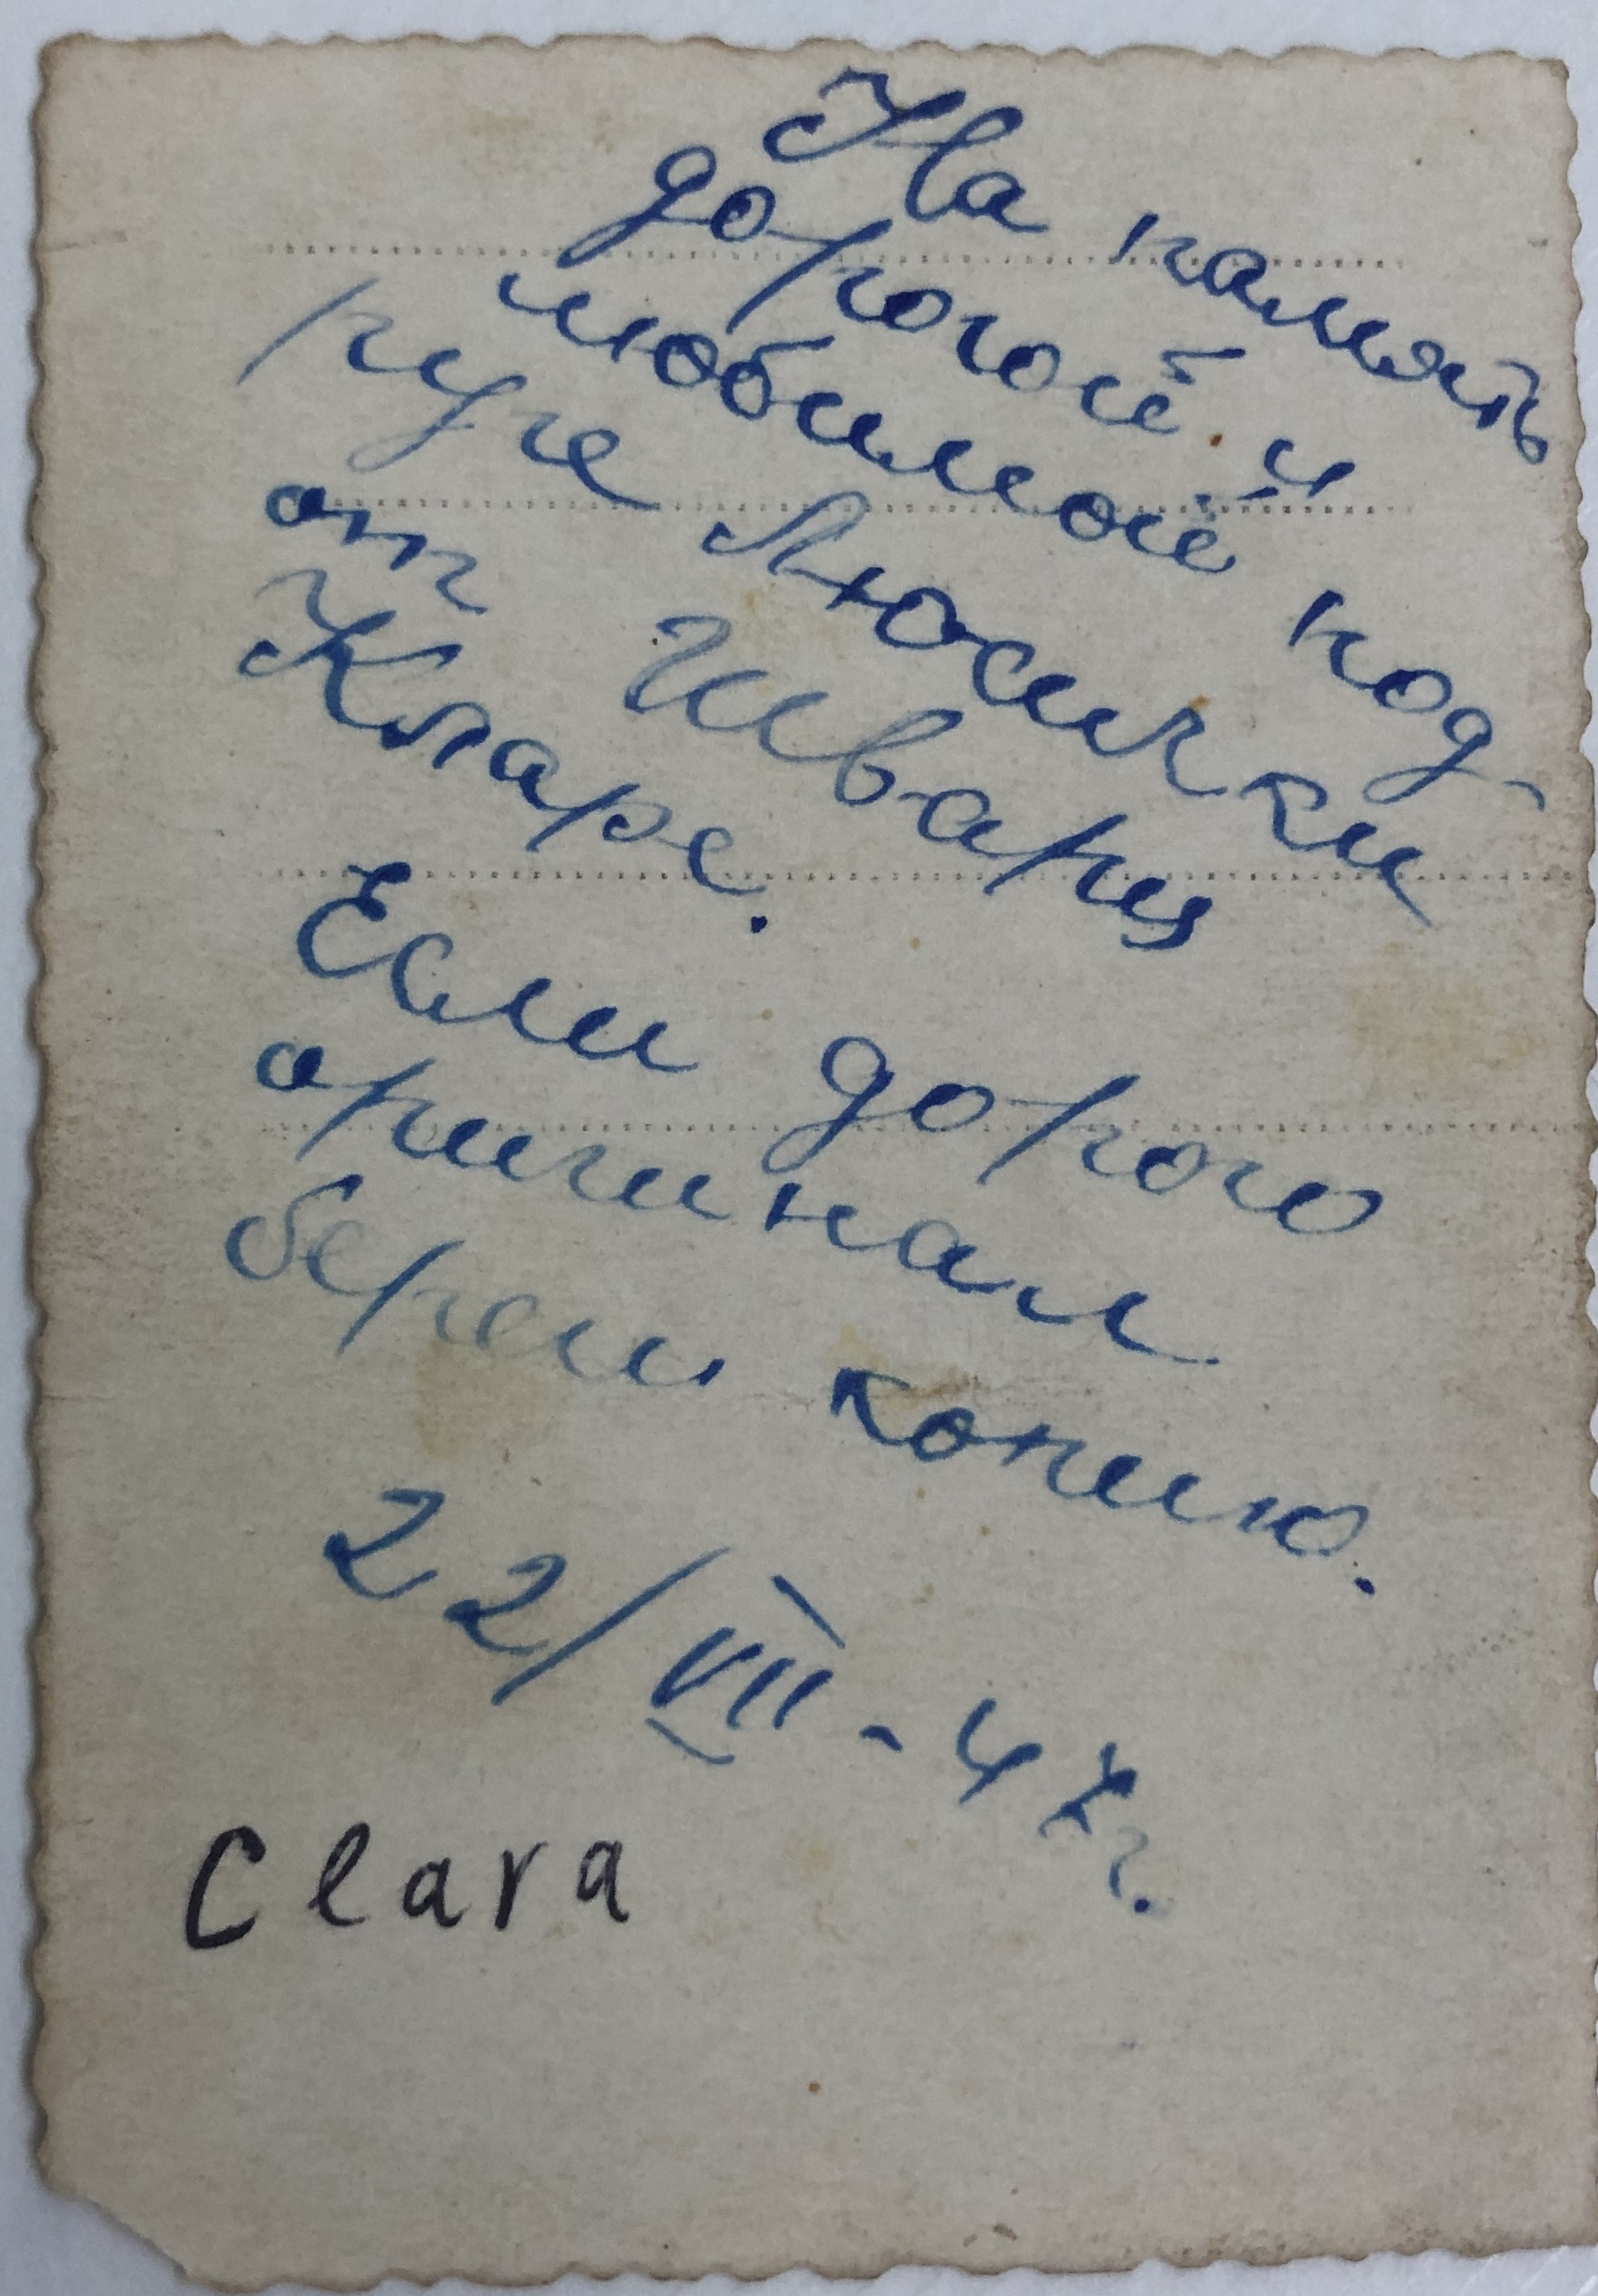 На память
дорогой и
любимой под-
руге Люсички
от Шварц
Кларе.
Если дорог
оригинал
береги копию.
22/VII-47г.
Clara